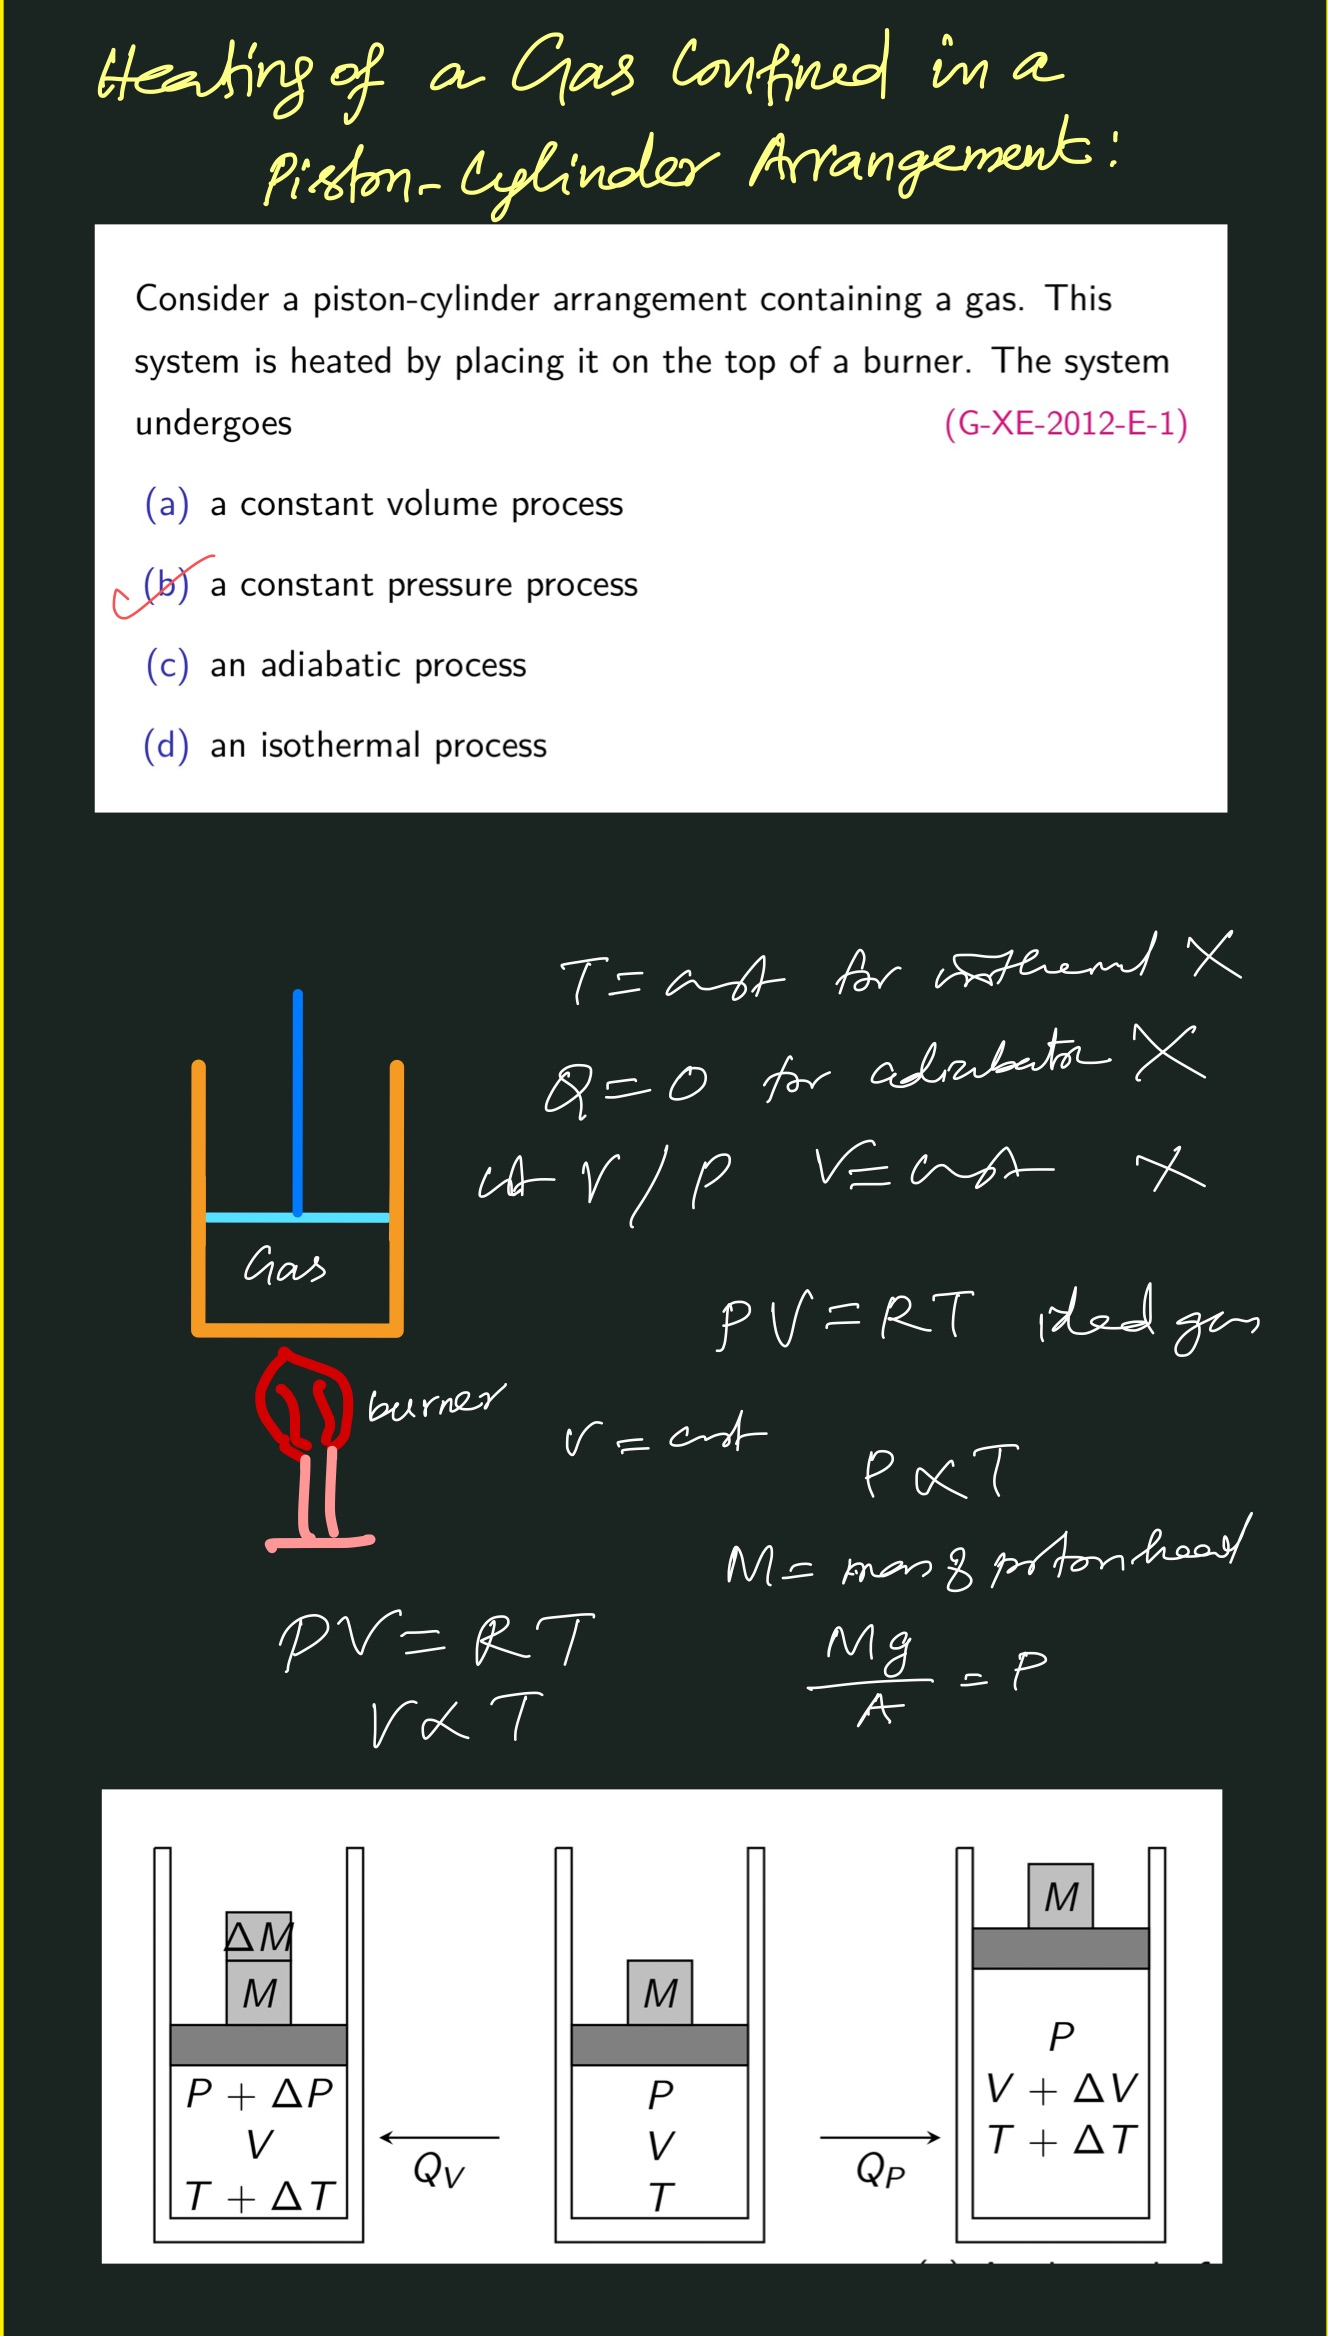 Heating of a Gas Confined in a
Piston-Cylinder Arrangement:
Consider a piston-cylinder arrangement containing a gas. This
system is heated by placing it on the top of a burner. The system
undergoes (G-XE-2012-E-1)
(a) a constant volume process
(b) a constant pressure process
(c) an adiabatic process
(d) an isothermal process
T = cst for isothermal X
Q = 0 for adiabatic X
cst V / P V = cst X
Gas
PV = RT ideal gas
burner
V = cst
P ∝ T
M = mass of piston head
PV = RT
Mg
A
= P
V ∝ T
ΔM
M
P + ΔP
V
T + ΔT
Q_V
M
P
V
T
Q_P
M
P
V + ΔV
T + ΔT